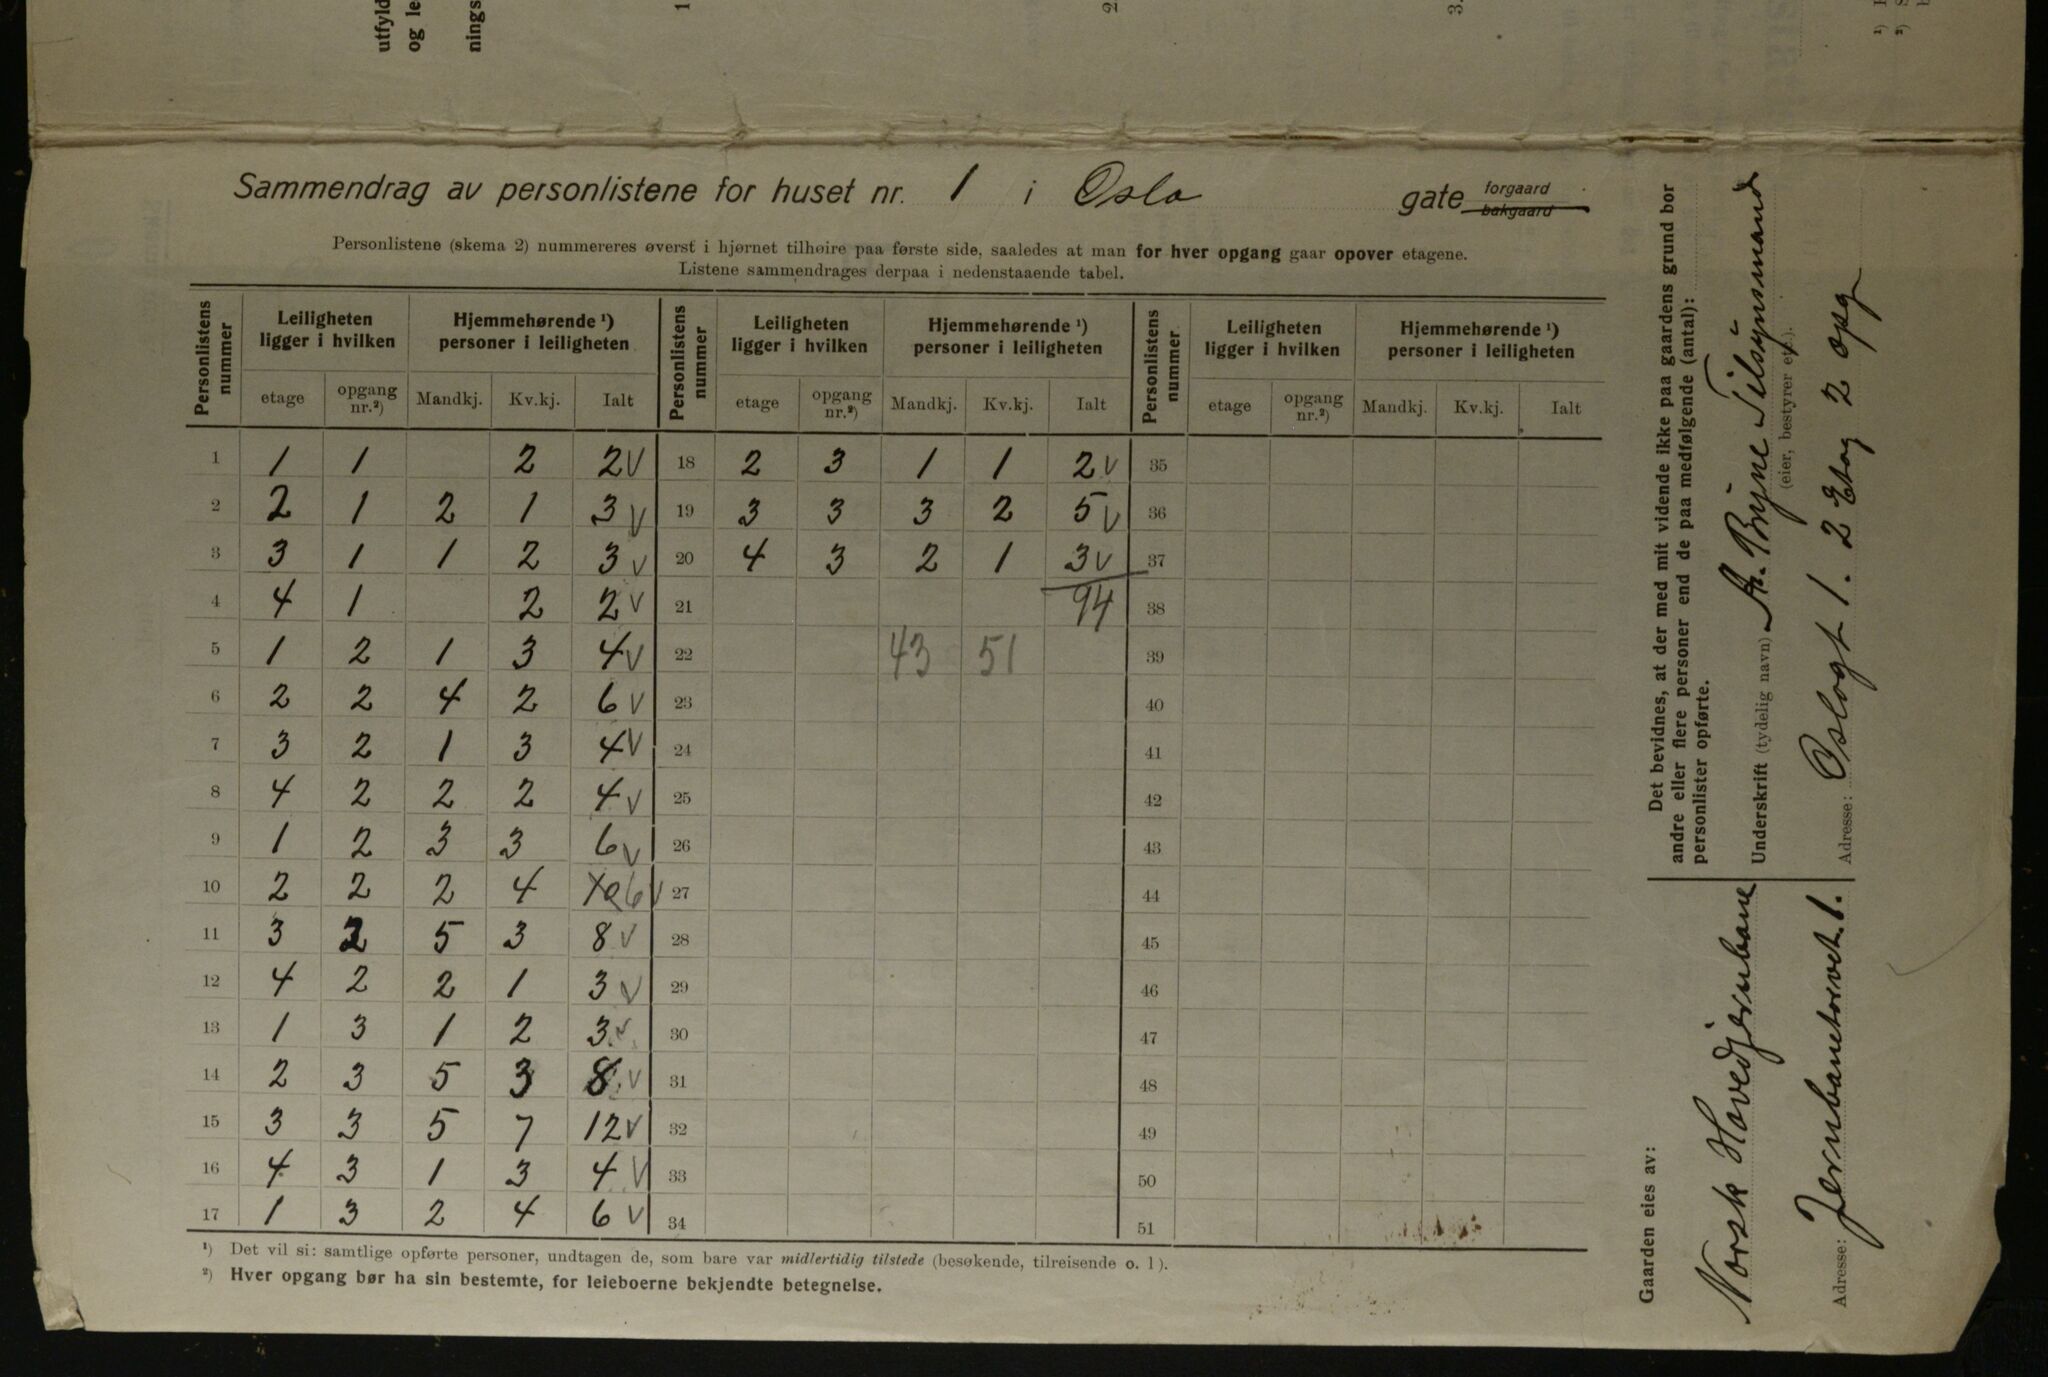 utfyld
og le
nings
1
2
3.
Sammendrag av personlistene for huset nr. 1 i Oslo gate forgaard bakgaard
Personlistene (skema 2) nummereres øverst i hjørnet tilhøire paa første side, saaledes at man for hver opgang gaar opover etagene.
Listene sammendrages derpaa i nedenstaaende tabel.
Personlistens nummer | Leiligheten ligger i hvilken | Hjemmehørende ¹) personer i leiligheten | Personlistens nummer | Leiligheten ligger i hvilken | Hjemmehørende ¹) personer i leiligheten | Personlistens nummer | Leiligheten ligger i hvilken | Hjemmehørende ¹) personer i leiligheten
etage | opgang nr.²) | Mandkj. | Kv.kj. | Ialt | etage | opgang nr.²) | Mandkj. | Kv.kj. | Ialt | etage | opgang nr.²) | Mandkj. | Kv.kj. | Ialt
1 1 1 2 2 V 18 2 3 1 1 2 V 35
2 2 1 2 1 3 V 19 3 3 3 2 5 V 36
3 3 1 1 2 3 V 20 4 3 2 1 3 V 37
4 4 1 2 2 V 21 94 38
5 1 2 1 3 4 V 22 43 51 39
6 2 2 4 2 6 V 23 40
7 3 2 1 3 4 V 24 41
8 4 2 2 2 4 V 25 42
9 1 2 3 3 6 V 26 43
10 2 2 2 4 6 V 27 44
11 3 2 5 3 8 V 28 45
12 4 2 2 1 3 V 29 46
13 1 3 1 2 3 V 30 47
14 2 3 5 3 8 V 31 48
15 3 3 5 7 12 V 32 49
16 4 3 1 3 4 V 33 50
17 1 3 2 4 6 V 34 51
¹) Det vil si: samtlige opførte personer, undtagen de, som bare var midlertidig tilstede (besøkende, tilreisende o. l).
²) Hver opgang bør ha sin bestemte, for leieboerne bekjendte betegnelse.
Det bevidnes, at der med mit vidende ikke paa gaardens grund bor
andre eller flere personer end de paa medfølgende (antal):
personlister opførte.
Underskrift (tydelig navn) A. Bryne Tilsynsmand
(eier, bestyrer etc.).
Adresse: Oslogt 1. 2 Etag 2 opg
Gaarden eies av:
Norsk Hovedjernbane
Adresse: Jernbanetorvet 1.
¹)
²)